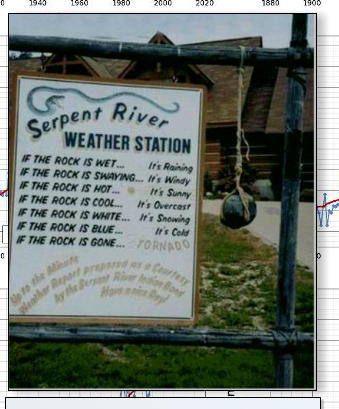 1940 1960 1980 2000 2020 1880 1900
Serpent River
WEATHER STATION
IF THE ROCK IS WET... It's Raining
IF THE ROCK IS SWAYING... It's Windy
IF THE ROCK IS HOT... It's Sunny
IF THE ROCK IS COOL... It's Overcast
IF THE ROCK IS WHITE... It's Snowing
IF THE ROCK IS BLUE... It's Cold
IF THE ROCK IS GONE... TORNADO
Up to the Minute
Weather Report prepared as a Courtesy
by the Serpent River Indian Band
Have a nice Day!